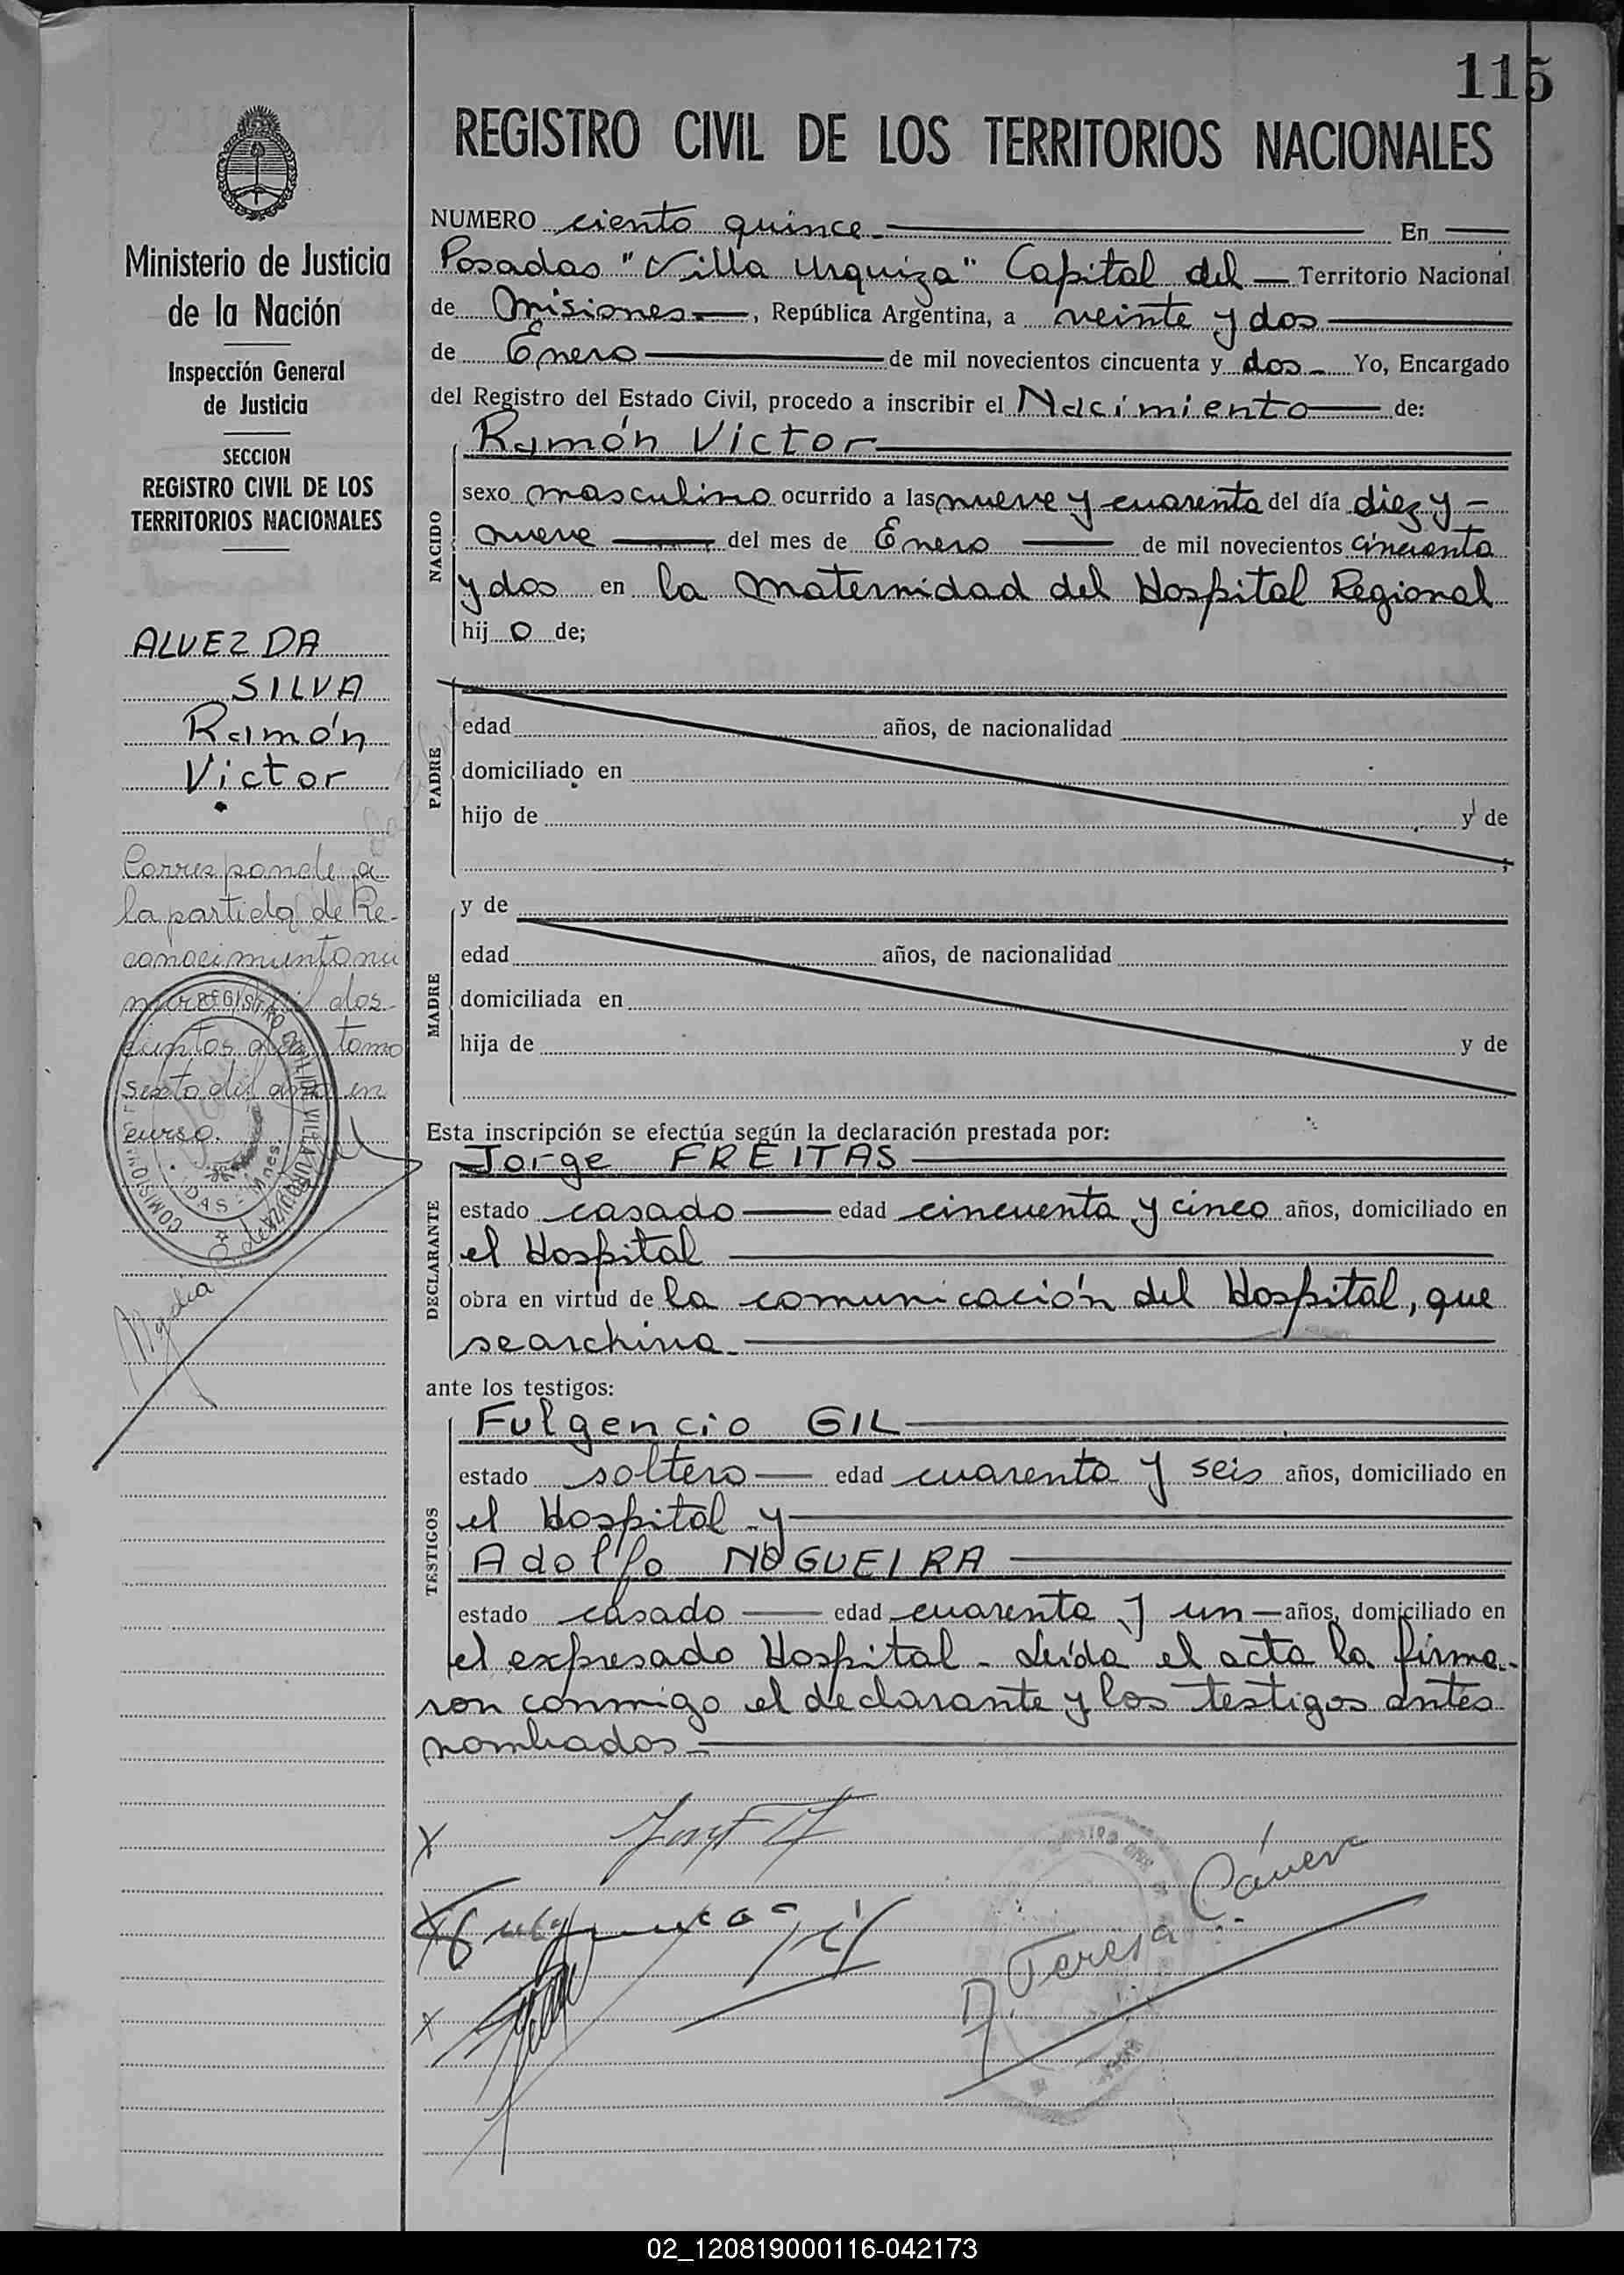 115
REGISTRO CIVIL DE LOS TERRITORIOS NACIONALES
Ministerio de Justicia
de la Nación
Inspección General
de Justicia
SECCION
REGISTRO CIVIL DE LOS
TERRITORIOS NACIONALES
ALVEZ DA
SILVA
Ramón
Victor
Corresponde a
la partida de Re-
conocimiento nú
mero dos-
cientos tomo
sexto del año en
curso.
REGISTRO CIVIL DE VILLA URQUIZA
NUMERO ciento quince.- En
Posadas "Villa Urquiza" Capital del Territorio Nacional
de Misiones.-, República Argentina, a veinte y dos
de Enero de mil novecientos cincuenta y dos Yo, Encargado
del Registro del Estado Civil, procedo a inscribir el Nacimiento de:
Ramón Victor
NACIDO
sexo masculino ocurrido a las nueve y cuarenta del día diez y -
nueve del mes de Enero de mil novecientos cincuenta
y dos en la Maternidad del Hospital Regional
hij o de;
PADRE
edad años, de nacionalidad
domiciliado en
hijo de y de
;
MADRE
y de
edad años, de nacionalidad
domiciliada en
hija de y de
Esta inscripción se efectúa según la declaración prestada por:
DECLARANTE
Jorge FREITAS
estado casado edad cincuenta y cinco años, domiciliado en
el Hospital
obra en virtud de la comunicación del Hospital, que
se archiva.
ante los testigos:
TESTIGOS
Fulgencio GIL
estado soltero edad cuarenta y seis años, domiciliado en
el Hospital y
Adolfo NOGUEIRA
estado casado edad cuarenta y un años, domiciliado en
el expresado Hospital - Leída el acta la firma-
ron conmigo el declarante y los testigos antes
nombados.-
X
X Fulgencio Gil
X
A. Teresa
02_120819000116-042173